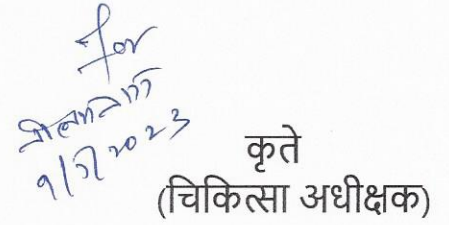 for
9/5/2023
कृते
(चिकित्सा अधीक्षक)